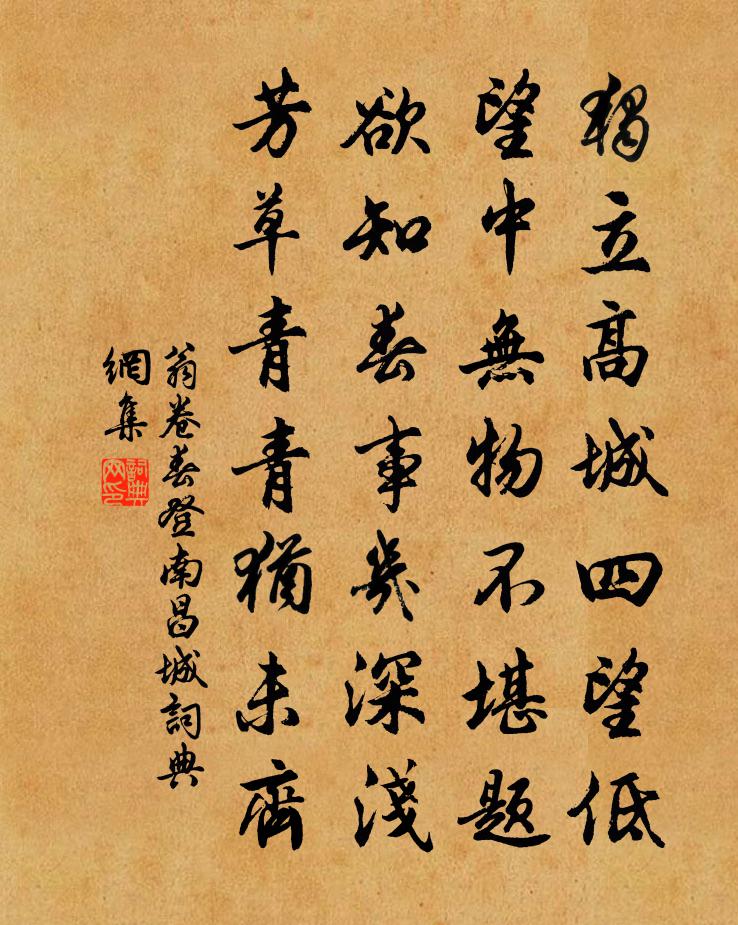 獨立高城四望低
望中無物不堪題
欲知春事幾深淺
芳草青青猶未齊
翁卷春登南昌城詞典
網集
詞典
网印